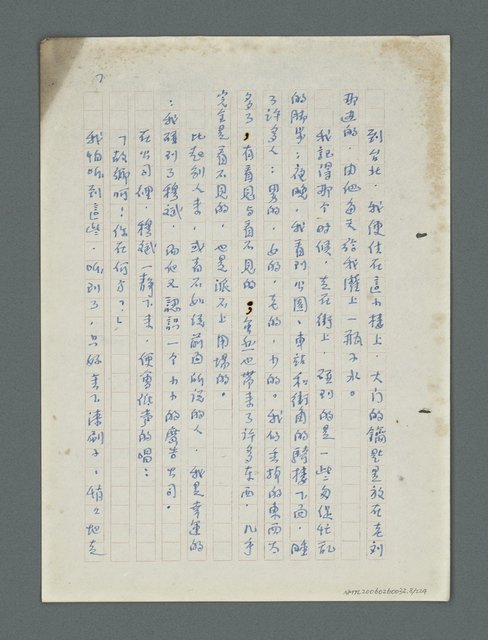 到台北，我便住在這小樓上，大门的鑰匙是放在老刘
那边的，由他每天给我灌上一瓶子水。
我記得那个时候，走在街上，碰到的是一些匆促忙乱
的脚步；夜晚，我看到公園、車站和街角的騎樓下面，睡
了許多人；男的，女的，老的，少的。我们丢掉的東西太
多了，有看見与看不見的；当然也带来了許多东西，几乎
完全是看不見的，也是派不上用場的。
比起别人来，或者不如说前面所说的人，我是幸運的
：我碰到了穆斌，而他又認識一个小小的廣告公司。
在公司裡，穆斌一静下来，便會低声的唱：
「故鄉呵！你在何方？」
我怕听到這些，听到了，只好丢下漆刷子，悄々地走
7
NMTL20060260032.8/224